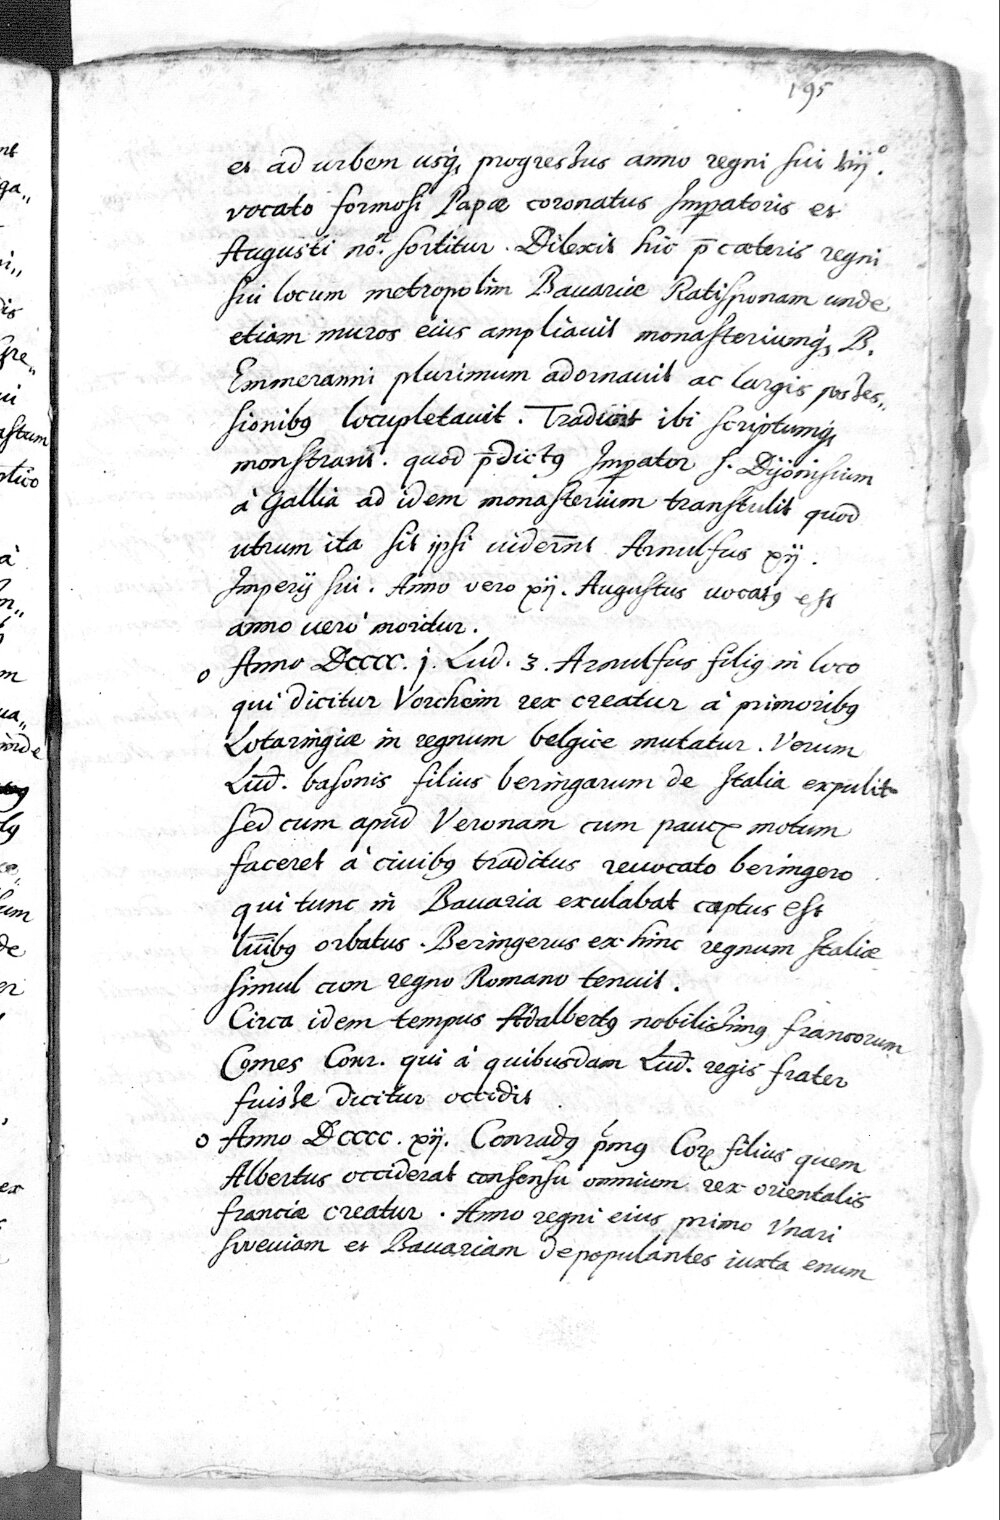 195
et ad urbem usq̃ progressus anno regni sui
vocato formosi Papæ coronatus Imp̃atoris et
Augusti no͞e sortitur. Dilexit hic p̄ cæteris regni
sui locum metropolim Bauariæ Ratisponam unde
etiam muros eius ampliauit monasteriumq̃ B.
Emmeranni plurimum adornauit ac largis posses„
sionibꝰ locupletauit. Tradunt ibi scriptumq̃
monstrant. quod p̄dictꝰ Imp̃ator S. Dijonisium
à Gallia ad idem monasterium transtulit quod
utrum ita sit ipsi uider̄nt Arnulfus xij.
Imperij sui. Anno vero xij. Augustus uocatꝰ est
anno uero moritur.
o Anno Dcccc. j. Lud. 3. Arnulfus filiꝰ in loco
qui dicitur Vorcheim rex creatur à primoribꝰ
Lotaringiæ in regnum belgice mutatur. Verum
Lud. basonis filius beringarum de Italia expulit
sed cum apud Veronam cum paucꝭ motum
faceret à ciuibꝰ traditus reuocato beringero
qui tunc in Bauaria exulabat captus est
lui͞bꝰ orbatus. Beringerus ex hinc regnum Italiæ
simul cum regno Romano tenuit.
Circa idem tempus Adalbertꝰ nobilissimꝰ francorum
Comes Conr. qui à quibusdam Lud. regis frater
fuisse dicitur occidit
o Anno Dcccc. xij. Conradꝰ p̄mꝰ Coñ filius quem
Albertus occiderat consensu omnium rex orientalis
franciæ creatur. Anno regni eius primo Vnari
sweuiam et Bauariam depopulantes iuxta enum